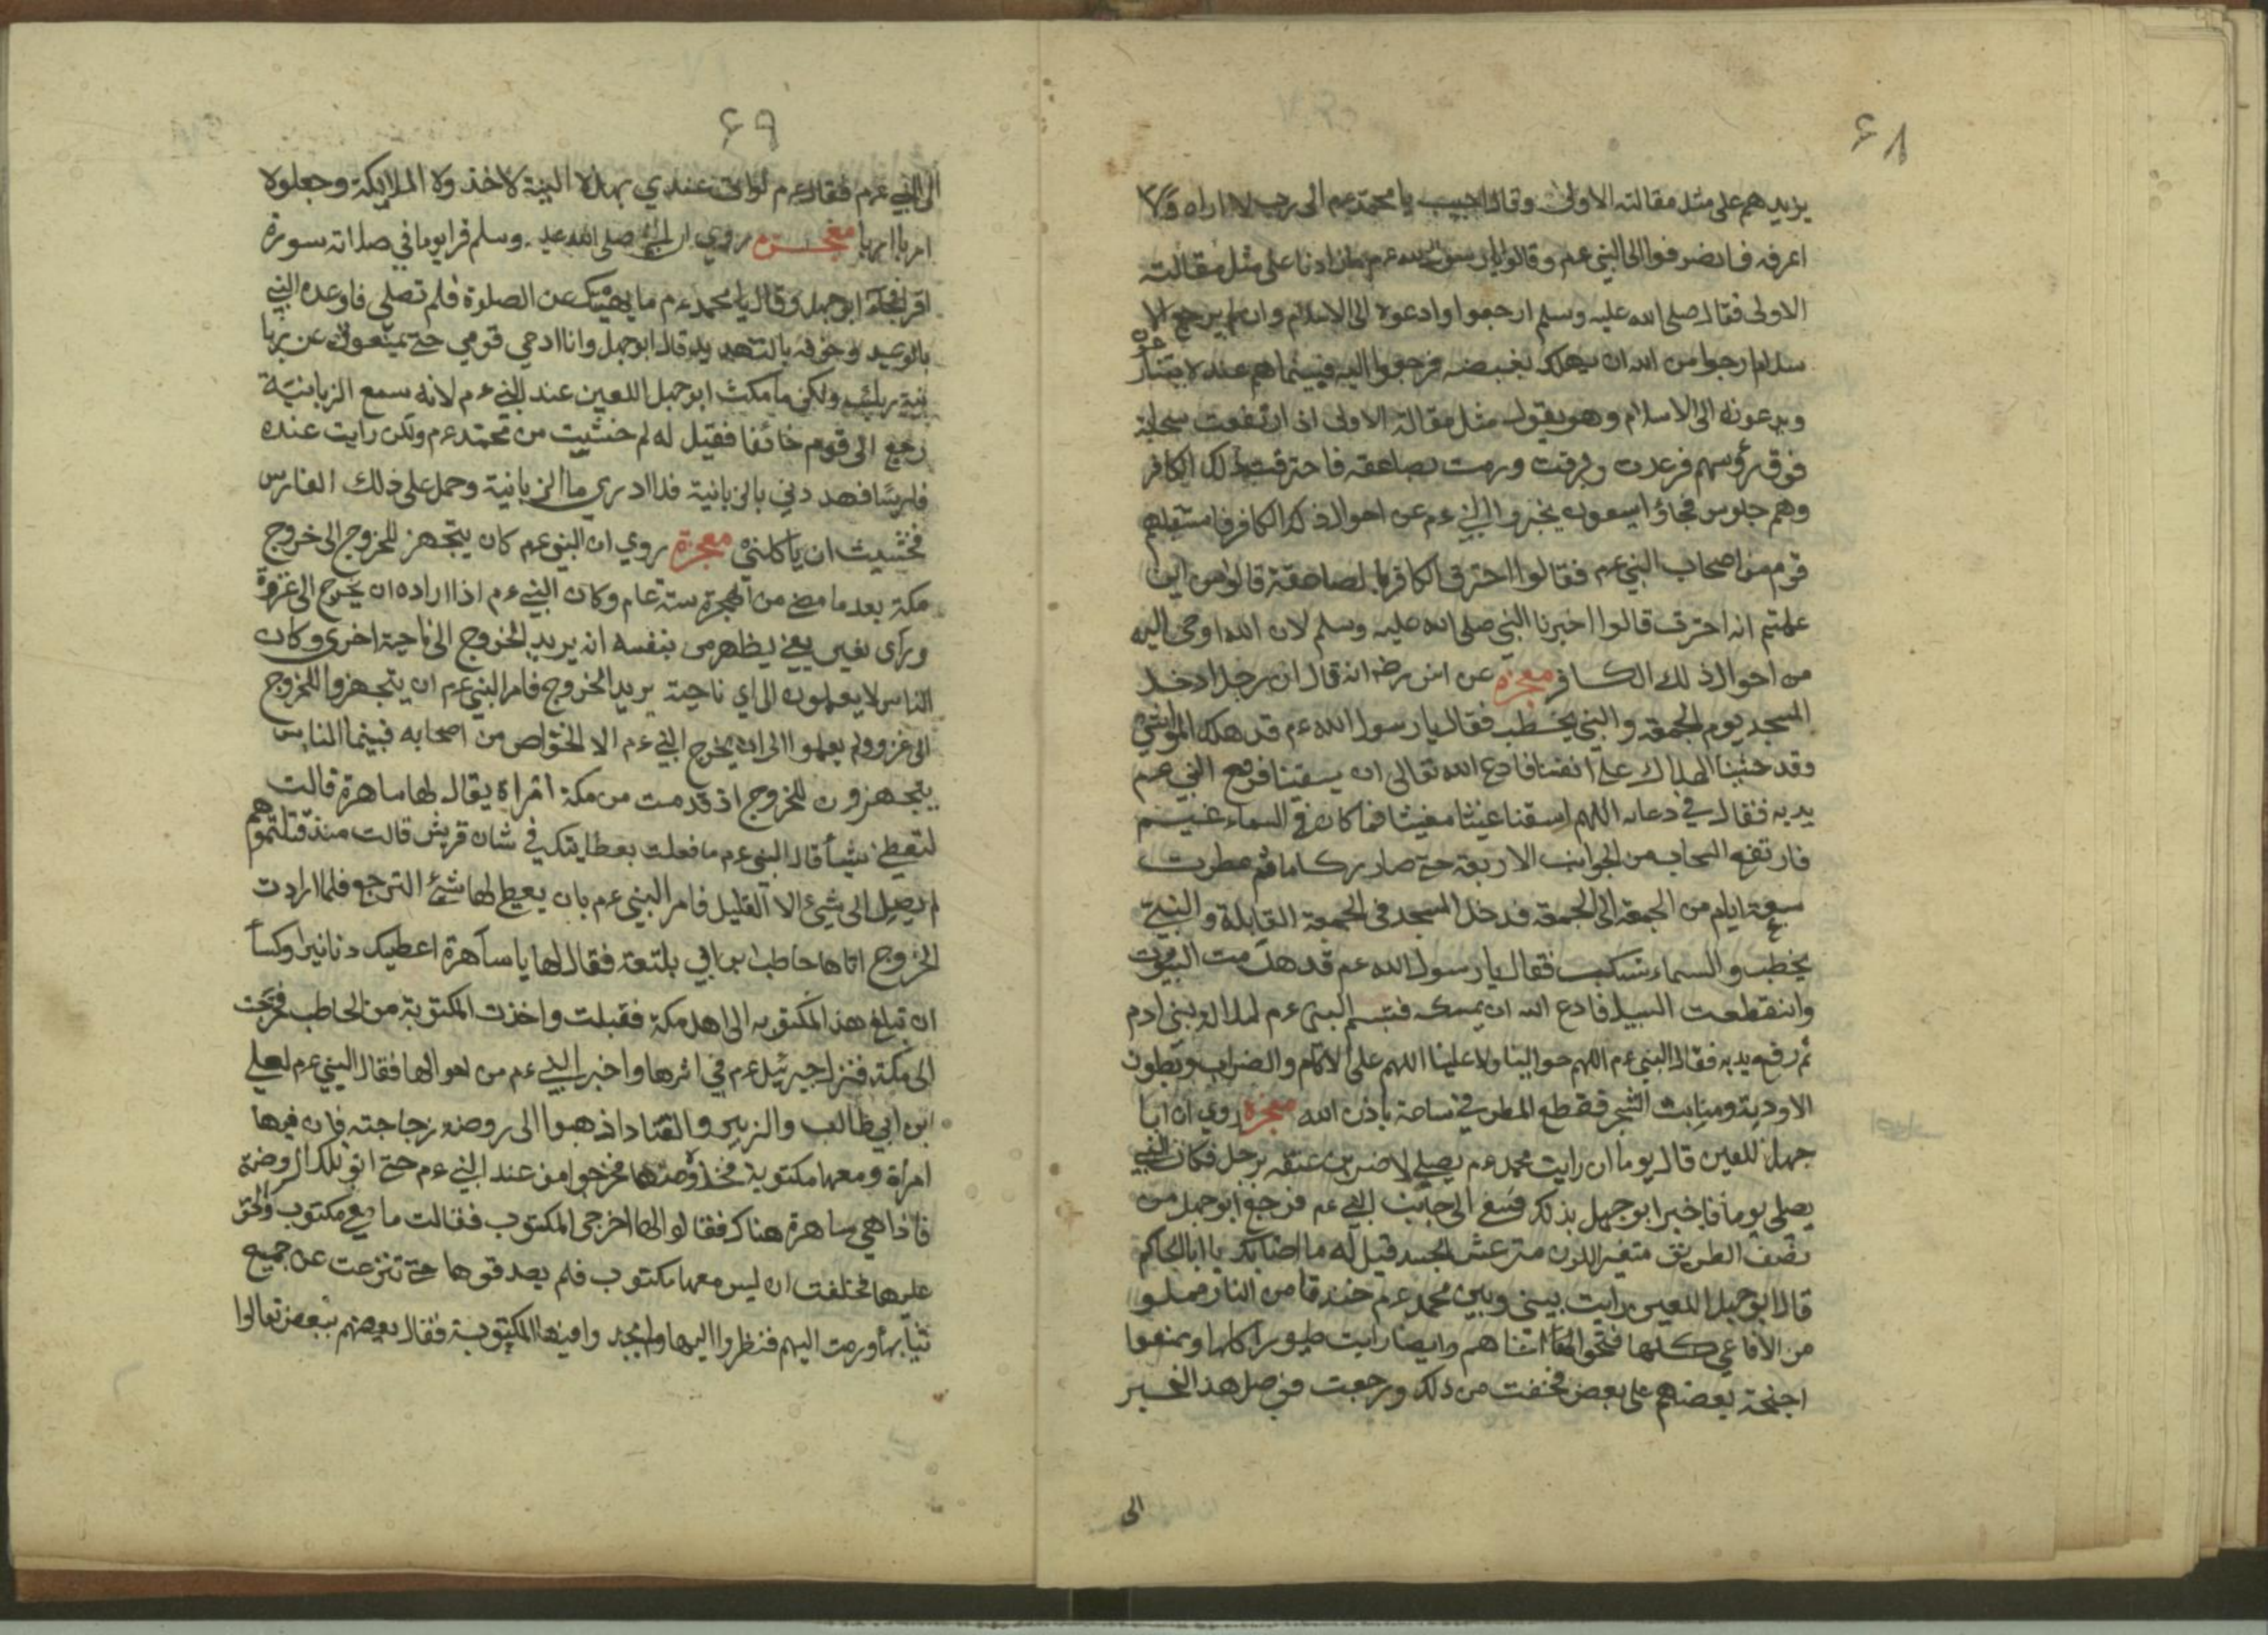 ۶۸
يزيدهم على مثل مقالته الاولى وقال اجيب يا محمد عم الى رب لا اراه ولا
اعرفه فانصرفوا الى النبي عم وقالوا يا رسول الله عم ما زادنا على مثل مقالته
الاولى فقال صلى الله عليه وسلم ارجعوا وادعوه الى الاسلام وان لم يرجع الا
ارجوا من الله ان يهلكه بغبضه فرجعوا اليه فبينما هم عنده
ويدعونه الى الاسلام وهو يقول مثل مقالة الاولى اذ ارتفعت سحابة
فوق رؤسهم فرعدت وبرقت ورمت بصاعقه فاحترقت ذلك الكافر
وهم جلوس فجاؤا يسعون يخبروا النبي عم عن احوال ذلك الكافر فاستقبلهم
قوم من اصحاب النبي عم فقالوا احترق الكافر بالصاعقة قالوا من اين
علمتم انه احترق قالوا اخبرنا النبي صلى الله عليه وسلم لان الله اوحى اليه
من احوال ذلك الكافر معجزة عن انس رض انه قال ان رجلا دخل
المسجد يوم الجمعة والنبي يخطب فقال يا رسول الله عم قد هلك المواشي
وقد خشينا الهلاك على انفسنا فادع الله تعالى ان يسقينا فرفع النبي عم
يديه فقال في دعائه اللهم اسقنا غيثا مغيثا فما كان في السماء غيم
فارتفع السحاب من الجوانب الاربعة حتى صار ركاما ثم مطرت
سبعة ايام من الجمعة الى الجمعة فدخل المسجد في الجمعة القابلة والنبي
يخطب والسماء تسكب فقال يا رسول الله عم قد هدمت البيوت
وانقطعت السبيل فادع الله ان يمسكه فتبسم النبي عم لملالة بني ادم
ثم رفع يديه فقال النبي عم اللهم حوالينا ولا علينا اللهم على الاكام والضراب وبطون
الاودية ومنابت الشجر فقطع المطر في ساعة باذن الله معجزة روي ان ابا
جهل اللعين قال يوما ان رايت محمد عم يصلي لاضربن عنقه برجل فكان النبي
يصلي يوما فاخبر ابو جهل بذلك فسعى الى جانب النبي عم فرجع ابو جهل من
نصف الطريق متغير اللون مترعش الجسد فقيل له ما اصابك يا ابا الحاكم
قال ابو جهل اللعين رايت بيني وبين محمد عم خندقا من النار مملو
من الافاعي كلها فتحوا وايضا رايت طيورا
اجنحة بعضهم على بعض فخفت من ذلك ورجعت فوصل هذا الخبر
الى
۶۹
الى النبي عم فقال عم لو اتى عندي بهذه النية لاخذوه الملايكة وجعلوه
اربا اربا معجزة روي ان النبي صلى الله عليه وسلم قرا يوما في صلاته سورة
اقرا فجاء ابو جهل وقال يا محمد عم ما يمنعك عن الصلوة فلم تصلى فاوعده النبي
بالوعيد وخوفه بالتهديد قال ابو جهل وانا ادعي قومي حتى يمنعوك عن
ولكن ما مكث ابو جهل اللعين عند النبي عم لانه سمع الزبانية
رجع الى قومه خائفا فقيل له لم خشيت من محمد عم ولكن رايت عنده
فارسا فهددني بالزبانية فلا ادري ما الزبانية وحمل على ذلك الفارس
فخشيت ان ياكلني معجزة روي ان النبي عم كان يتجهز للخروج الى خروج
مكة بعد ما مضى من الهجرة ستة عام وكان النبي عم اذا اراده ان يخرج الى غزوة
وراى بغير يعني يظهر من بنفسه انه يريد الخروج الى ناحية اخرى وكان
الناس لا يعلمون الى اي ناحية يريد الخروج فامر النبي عم ان يتجهزوا للخروج
الى غزو ولم يعلموا الى اين يخرج النبي عم الا الخواص من اصحابه فبينما الناس
يتجهزون للخروج اذ قدمت من مكة امراة يقال لها ساهرة قالت
لتعطيني شيأ قال النبي عم ما فعلت بعطايتك في شان قريش قالت منذ قتلتموهم
لم يصل الى شيئ الا القليل فامر النبي عم بان يعطى لها شئ الترجع فلما ارادت
الخروج اتاها حاطب ابن ابي بلتعة فقال لها يا ساهرة اعطيك دنانيرا وكسأ
ان تبلغ هذا المكتوبه الى اهل مكة فقبلت واخذت المكتوبة من الحاطب فخرجت
الى مكة فنزل جبرئيل عم في اثرها واخبر النبي عم من احوالها فقال النبي عم لعلي
ابن ابي طالب والزبير والمقداد اذهبوا الى روضه زجاجته فان فيها
امرأة ومعها مكتوبة فخذوه منها فخرجوا من عند النبي عم حتى اتو بلك الروضة
فاذا هي ساهرة هناك فقالوا لها اخرجي المكتوب فقالت ما معي مكتوب
عليها فحلفت ان ليس معها مكتوب فلم يصدقوها حتى تنزعت عن جميع
ثيابها ورمت اليهم فنظروا اليها ولم يجدوا فيها المكتوبة فقال بعضهم ببعض تعالوا